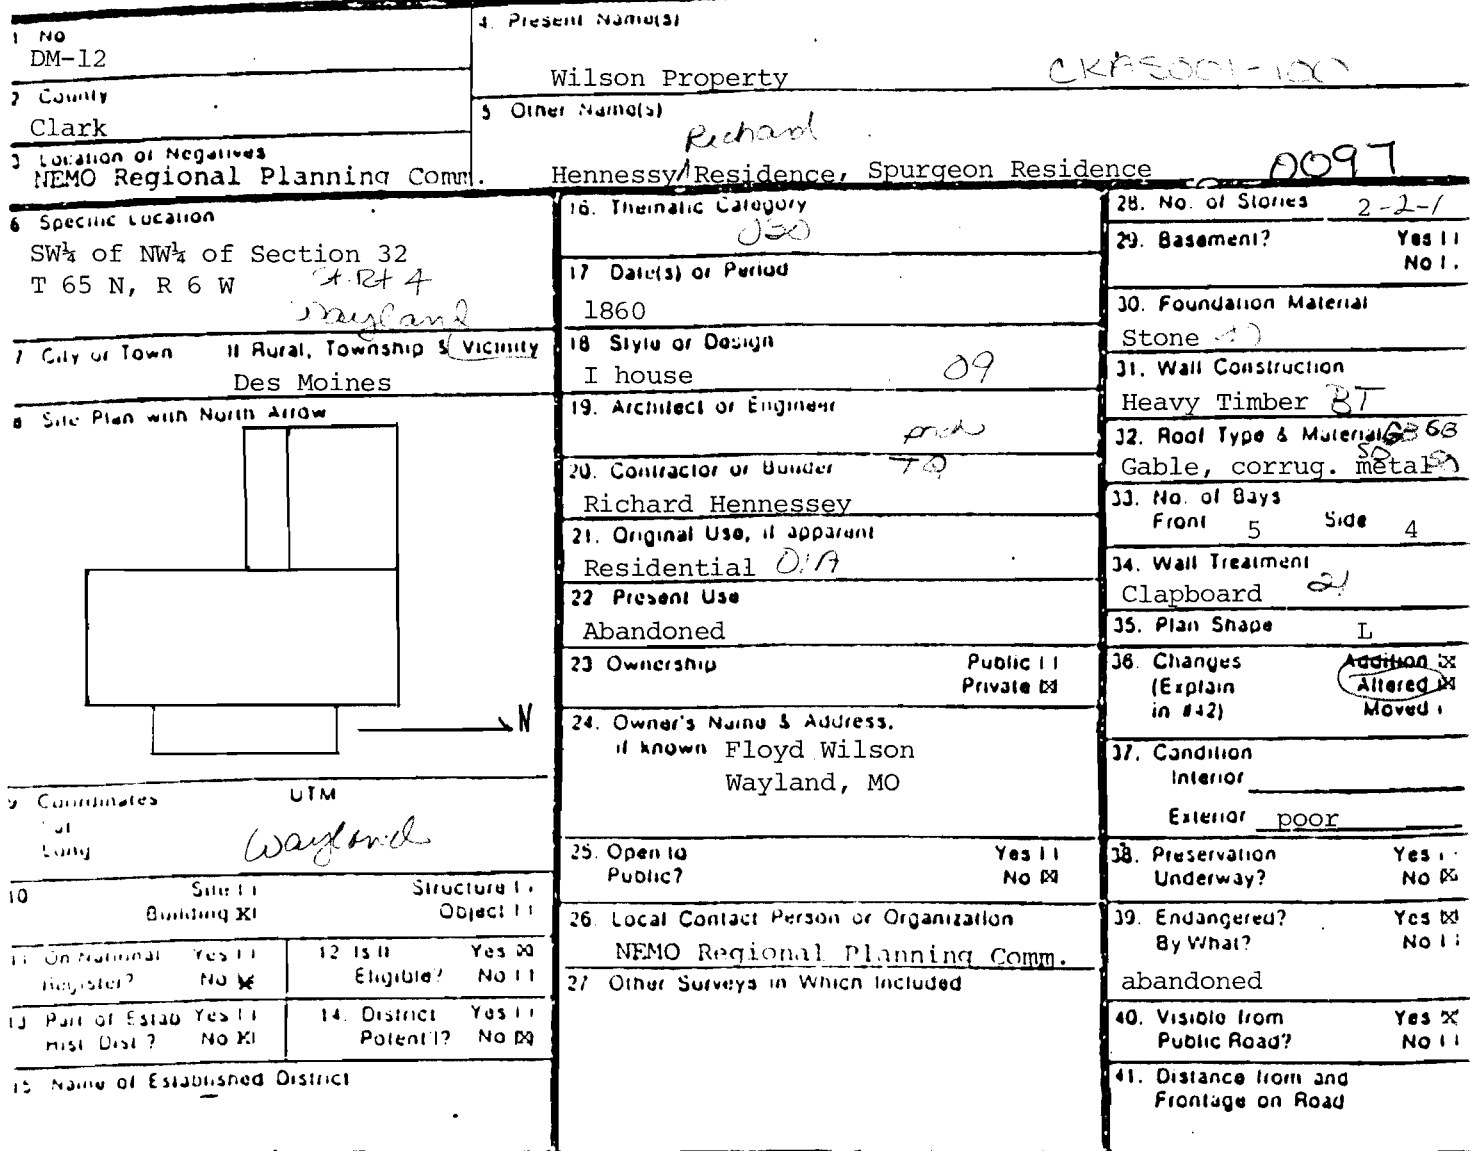 1 No
DM-12
4. Present Name(s)
Wilson Property
CKAS001-100
2 County
Clark
5 Other Name(s)
Richard
Hennessy Residence, Spurgeon Residence
0097
3 Location of Negatives
NEMO Regional Planning Comm.
6 Specific Location
SW¼ of NW¼ of Section 32
T 65 N, R 6 W
St. Rt 4
Wayland
7 City or Town If Rural, Township & Vicinity
Des Moines
8 Site Plan with North Arrow
N
9 Coordinates UTM
Lat
Long
Wayland
10 Site Structure
Building Object
11 On National Register? Yes No
12 Is it Eligible? Yes No
13 Part of Estab Hist. Dist.? Yes No
14. District Potent'l? Yes No
15 Name of Established District
16. Thematic Category
030
17 Date(s) or Period
1860
18 Style or Design
I house 09
19. Architect or Engineer
20. Contractor or Builder
Richard Hennessey
21. Original Use, if apparent
Residential 01A
22 Present Use
Abandoned
23 Ownership Public
Private
24. Owner's Name & Address,
if known Floyd Wilson
Wayland, MO
25. Open to Yes
Public? No
26. Local Contact Person or Organization
NEMO Regional Planning Comm.
27 Other Surveys in Which Included
28. No. of Stories 2-2-1
29. Basement? Yes
No
30. Foundation Material
Stone
31. Wall Construction
Heavy Timber BT
32. Roof Type & Material GB
Gable, corrug. metal
33. No. of Bays
Front 5 Side 4
34. Wall Treatment
Clapboard 21
35. Plan Shape L
36. Changes Addition
(Explain Altered
in #42) Moved
37. Condition
Interior
Exterior poor
38. Preservation Yes
Underway? No
39. Endangered? Yes
By What? No
abandoned
40. Visible from Yes
Public Road? No
41. Distance from and
Frontage on Road